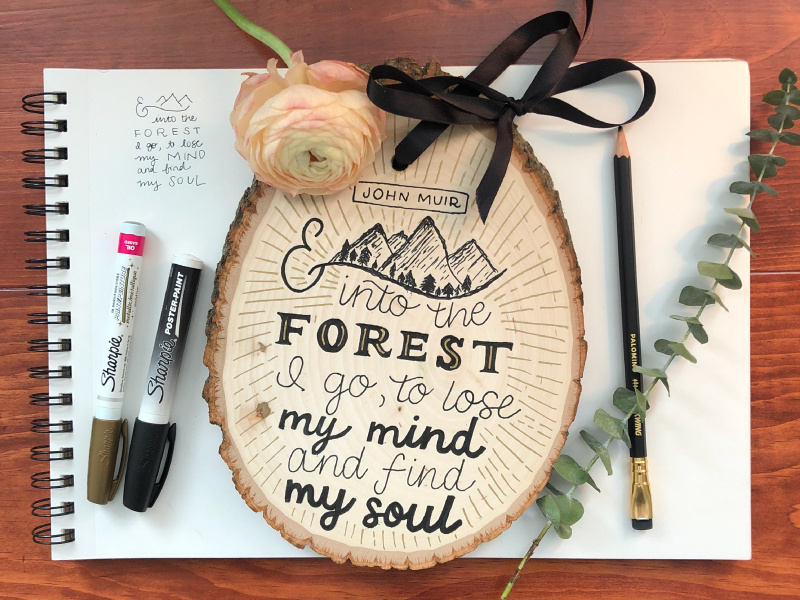 & into the
FOREST
I go, to lose
my MIND
and find
my SOUL
JOHN MUIR
&
into the
FOREST
I go, to lose
my mind
and find
my soul
OIL BASED
Sharpie
Sharpie POSTER-PAINT
PALOMINO